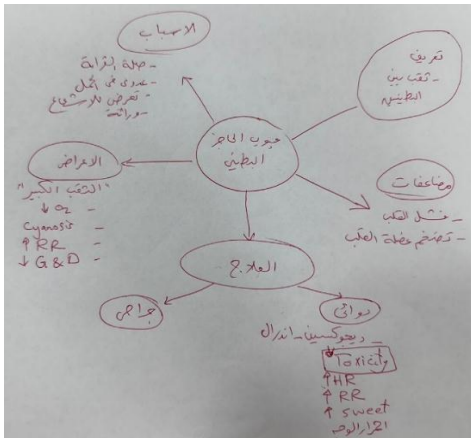 الاسباب
- صلة القرابة
- عدوى في الحمل
- تعرض للاشعاع
- وراثة
تعريف
- ثقب بين
البطينين
عيوب الحاجز
البطيني
الاعراض
"الثقب الكبير"
↓ O2 -
Cyanosis -
↑ RR -
↓ G & D -
مضاعفات
- فشل القلب
- تضخم عضلة القلب
العلاج
جراحي
دوائي
- ديجوكسين - اندرال
Toxicity
↑ HR
↑ RR
↑ sweet
احمرار الوجه